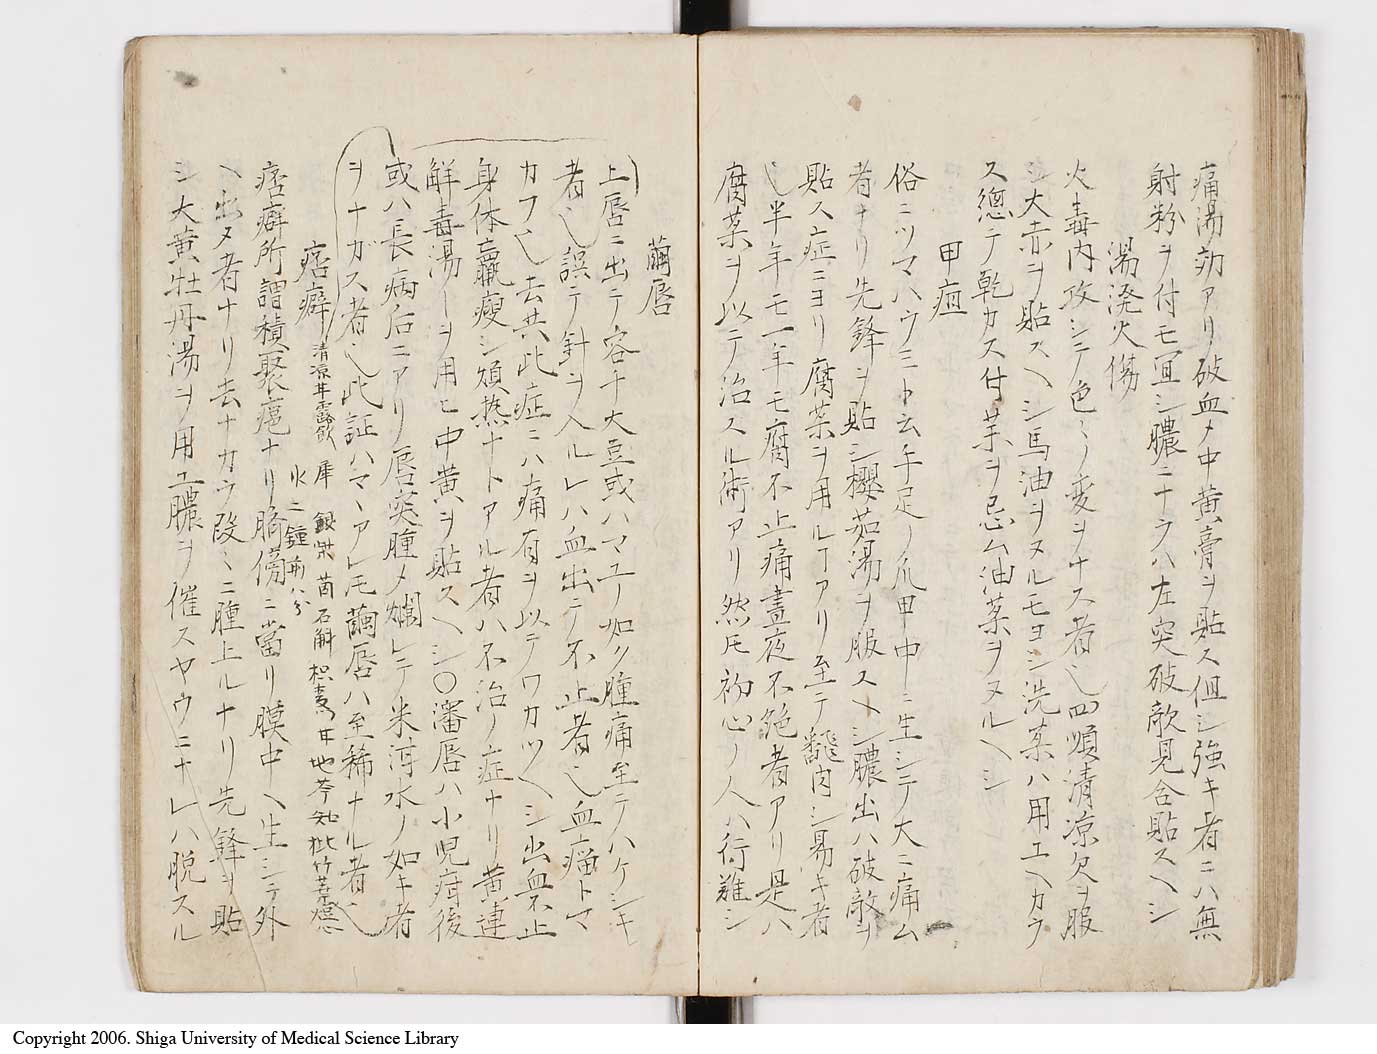 痛湯効アリ破血〆中黄膏ヲ貼ス但シ強キ者ニハ無
射粉ヲ付モ冝シ膿ニナラハ左突破敵見合貼スヘシ
湯溌火傷
火毒内攻シテ色々ノ変ヲナス者也四順清凉欠ヲ服
シ大赤ヲ貼スヘシ馬油ヲヌルモヨシ洗薬ハ用エヘカラ
ス總テ乾カス付薬ヲ忌ム油薬ヲヌルヘシ
甲疽
俗ニツマハウミト云手足ノ爪甲中ニ生シテ大ニ痛ム
者ナリ先鋒ヲ貼シ櫻茹湯ヲ服スヘシ膿出ハ破敵ヲ
貼ス症ニヨリ腐薬ヲ用ルヿアリ至テ飜肉シ昜キ者
也半年モ一年モ腐不止痛晝夜不絶者アリ是ハ
腐薬ヲ以テ治スル術アリ然𪜈初心ノ人ハ行難シ
繭唇
上唇ニ出テ容ナ大豆或ハマユノ如ク腫痛至テハケシキ
者也誤テ針ヲ入ルレハ血出テ不止者也血瘤トマ
カフ也去共此症ニハ痛有ヲ以テワカツヘシ出血不止
身体羸瘦シ煩热ナトアル者ハ不治ノ症ナリ黄連
解毒湯ヲ用ヒ中黄ヲ貼スヘシ○瀋唇ハ小児疳後
或ハ長病后ニアリ唇突腫〆爛レテ米泔水ノ如キ者
ヲナガス者也此証ハマヽアレ𪜈繭唇ハ至稀ナル者也
痞癖 清凉甘露飲 犀 銀柴 茵 石斛 枳 麦 甘 地 芩 知 枇 竹茹 燈心
水二鍾煎八分
痞癖所謂積聚疽ナリ脇傍ニ當リ膜中ヘ生シテ外
ヘ出ヌ者ナリ去ナカラ段々ニ腫上ルナリ先鋒ヲ貼
シ大黄牡丹湯ヲ用エ膿ヲ催スヤウニナレハ脱スル
Copyright 2006. Shiga University of Medical Science Library